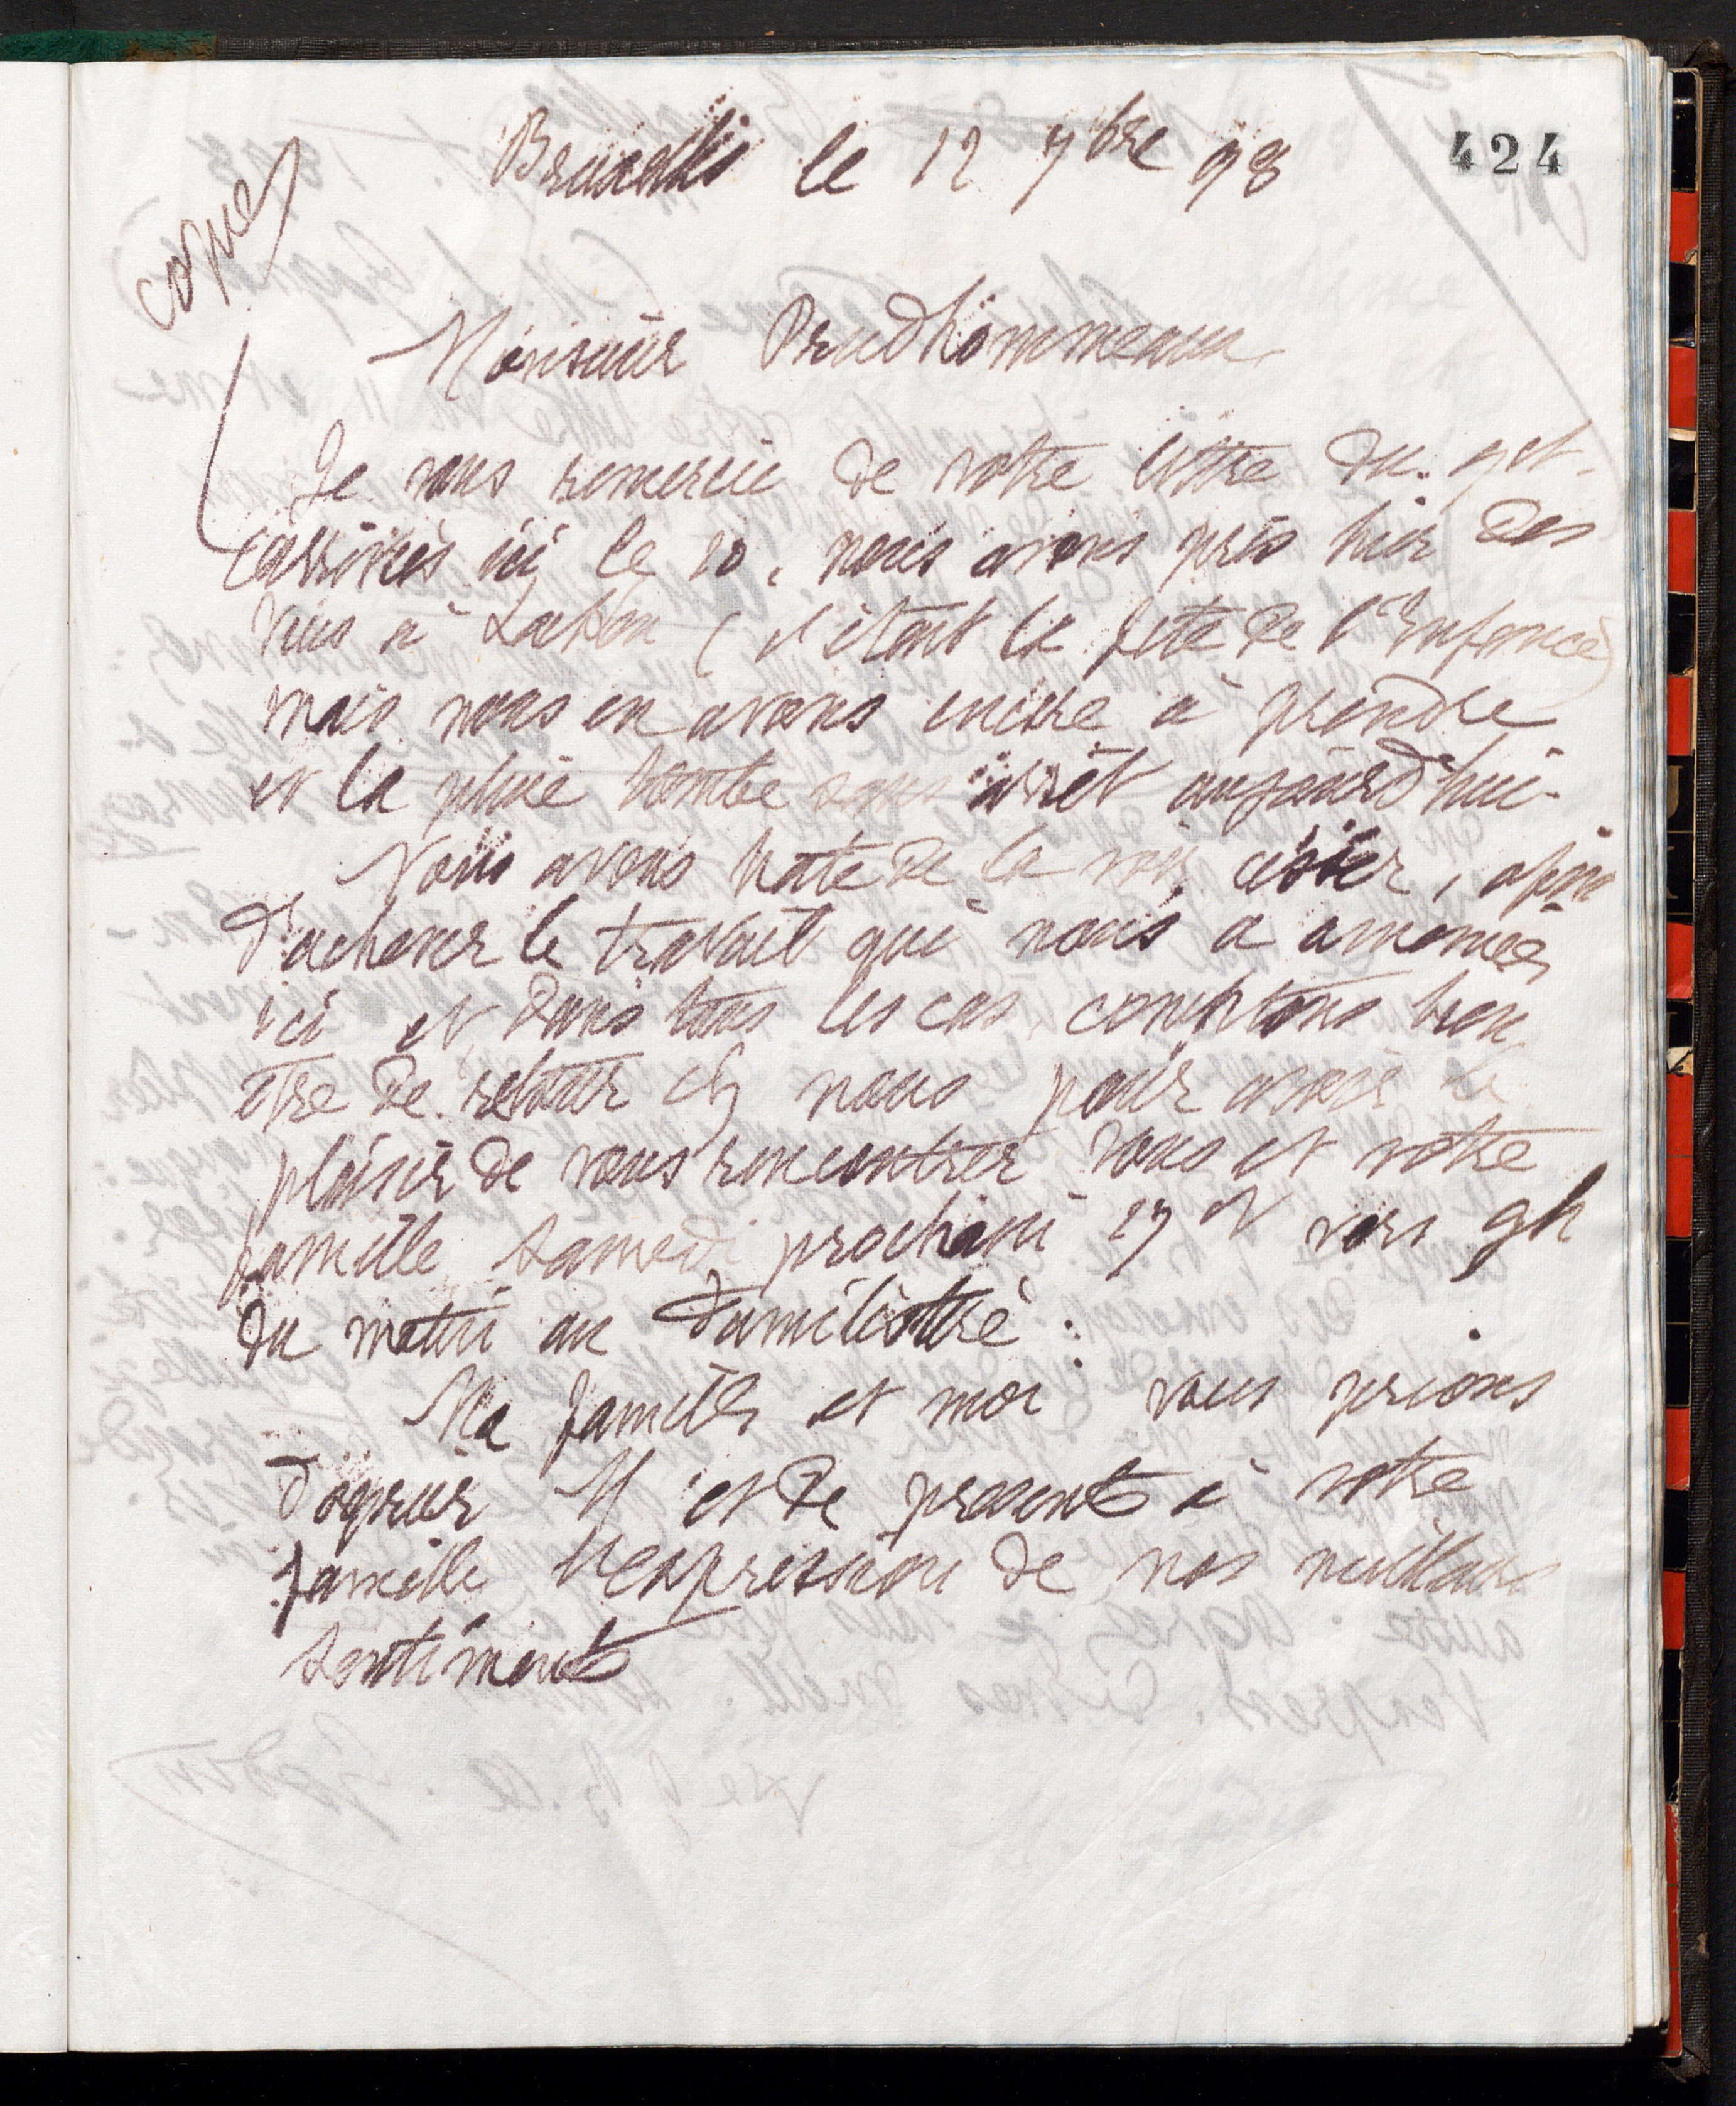 424
Bruxelles le 12 7bre 98
Copie
Monsieur Prudhommeaux
Je vous remercie de votre lettre du 9 ct.
arrivés ici le 10, nous avons pris hier des
vues à Laeken (c'était la fete de l'Enfance)
mais nous en avons encore à prendre
et la pluie tombe sans arrêt aujourd'hui.
Nous avons hate de la voir cesser, afin
d'achever le travail qui nous a amenées
ici et dans tous les cas, comptons bien
être de retour ch nous pour avoir le
plaisir de vous rencontrer vous et votre
famille samedi prochain 17 ct vers 9h
du matin au Familistère.
Ma famille et moi vous prions
d'agréer M et de presenter à votre
famille l'expression de nos meilleurs
sentiments